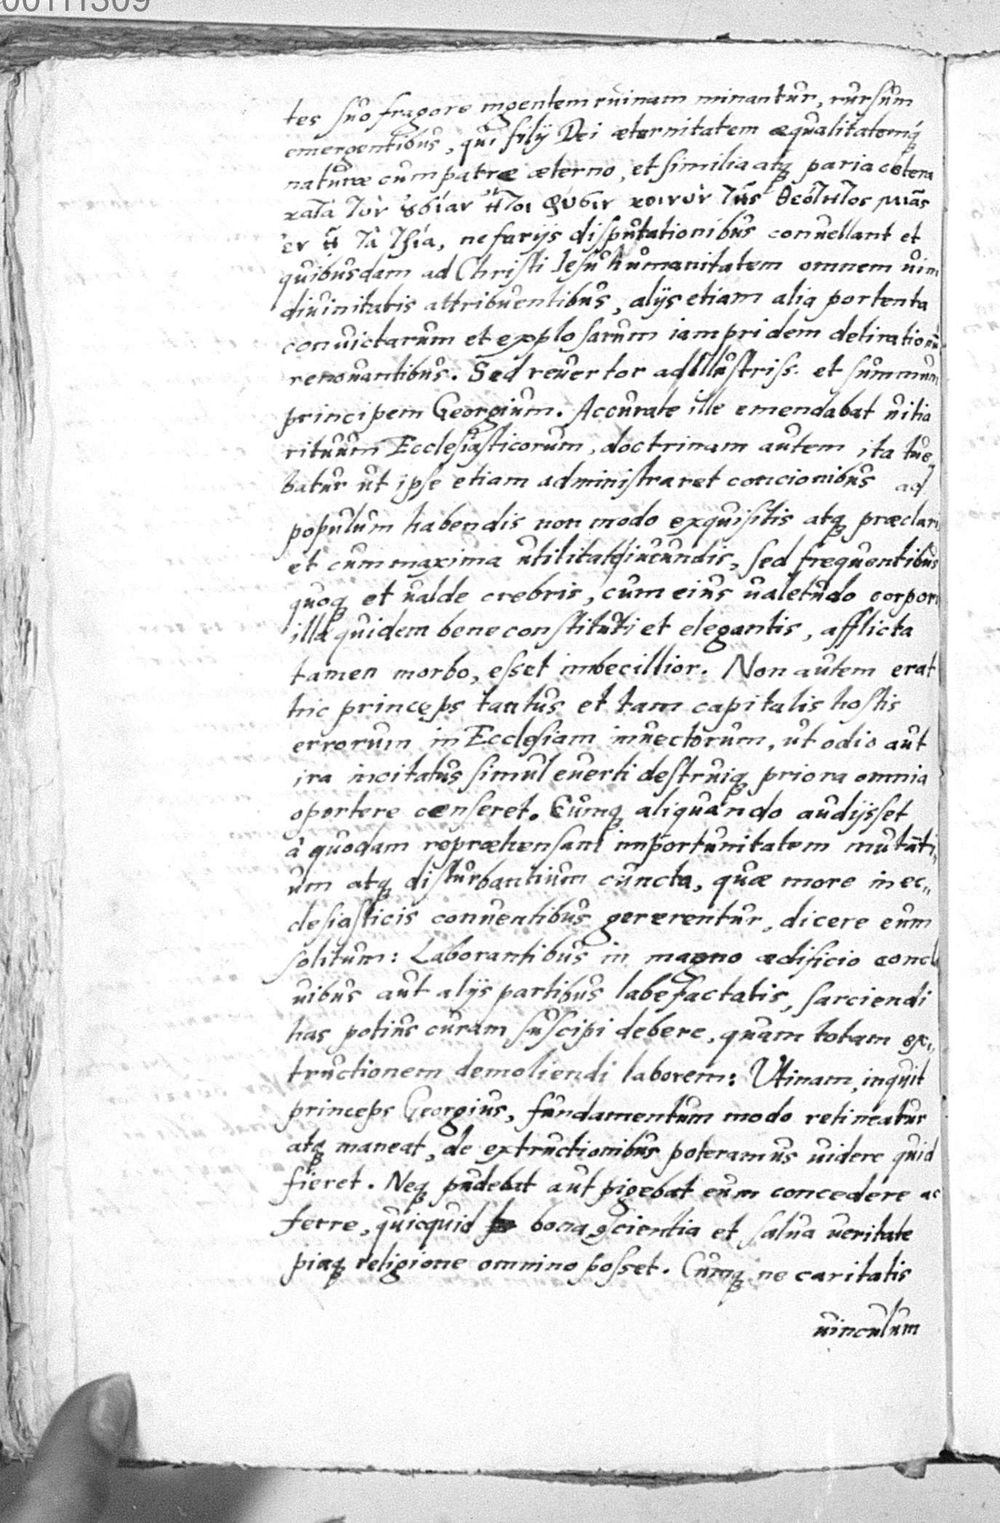 00111309
tes suo fragore ingentem ruinam minantur, rursum
emergentibus, qui filij Dei æternitatem æqualitatemq́
naturæ cum patre æterno, et similia atq paria cetera
κατὰ τὴν οὐσίαν ἤτοι φύσιν κοινὸν τῆς θεότητος μιᾶς
ἐν ᾗ τὰ τρία, nefarijs disputationibus conuellant et
quibusdam ad Christi Iesu humanitatem omnem uim
diuinitatis attribuentibus, alijs etiam alia portenta
conuictarum et explosarum iampridem delirationū
renouantibus. Sed reuertor ad Illustriss. et summum
principem Georgium. Accurate ille emendabat uitia
rituum Ecclesiasticorum, doctrinam autem ita tue,
batur ut ipse etiam administraret concionibus ad
populum habendis non modo exquisitis atq præclari
et cum maxima utilitate iucundis, sed frequentibus
quoq et ualde crebris, cum eius ualetudo corpori
illa quidem bene constituti et elegantis, afflicta
tamen morbo, esset imbecillior. Non autem erat
hic princeps tantus et tam capitalis hostis
errorum in Ecclesiam inuectorum, ut odio aut
ira incitatus simul euerti destruiq priora omnia
oportere censeret. Cumq aliquando audijsset
à quodam repræhensant importunitatem mutāti,
um atq disturbantium cuncta, quæ more in ec,,
clesiasticis conuentibus gererentur, dicere eum
solitum: Laborantibus in magno ædificio concl
uibus aut alijs partibus labefactatis, sarciendi
has potius curam suscipi debere, quam totam ex,,
tructionem demoliendi laborem: Utinam, inquit
princeps Georgius, fundamentum modo retineatur
atq maneat, de extructionibus poteramus uidere quid
fieret. Neq pudebat aut pigebat eum concedere ac
ferre, quicquid bona scientia et salua ueritate
piaq religione omnino posset. Cumq ne caritatis
uinculum